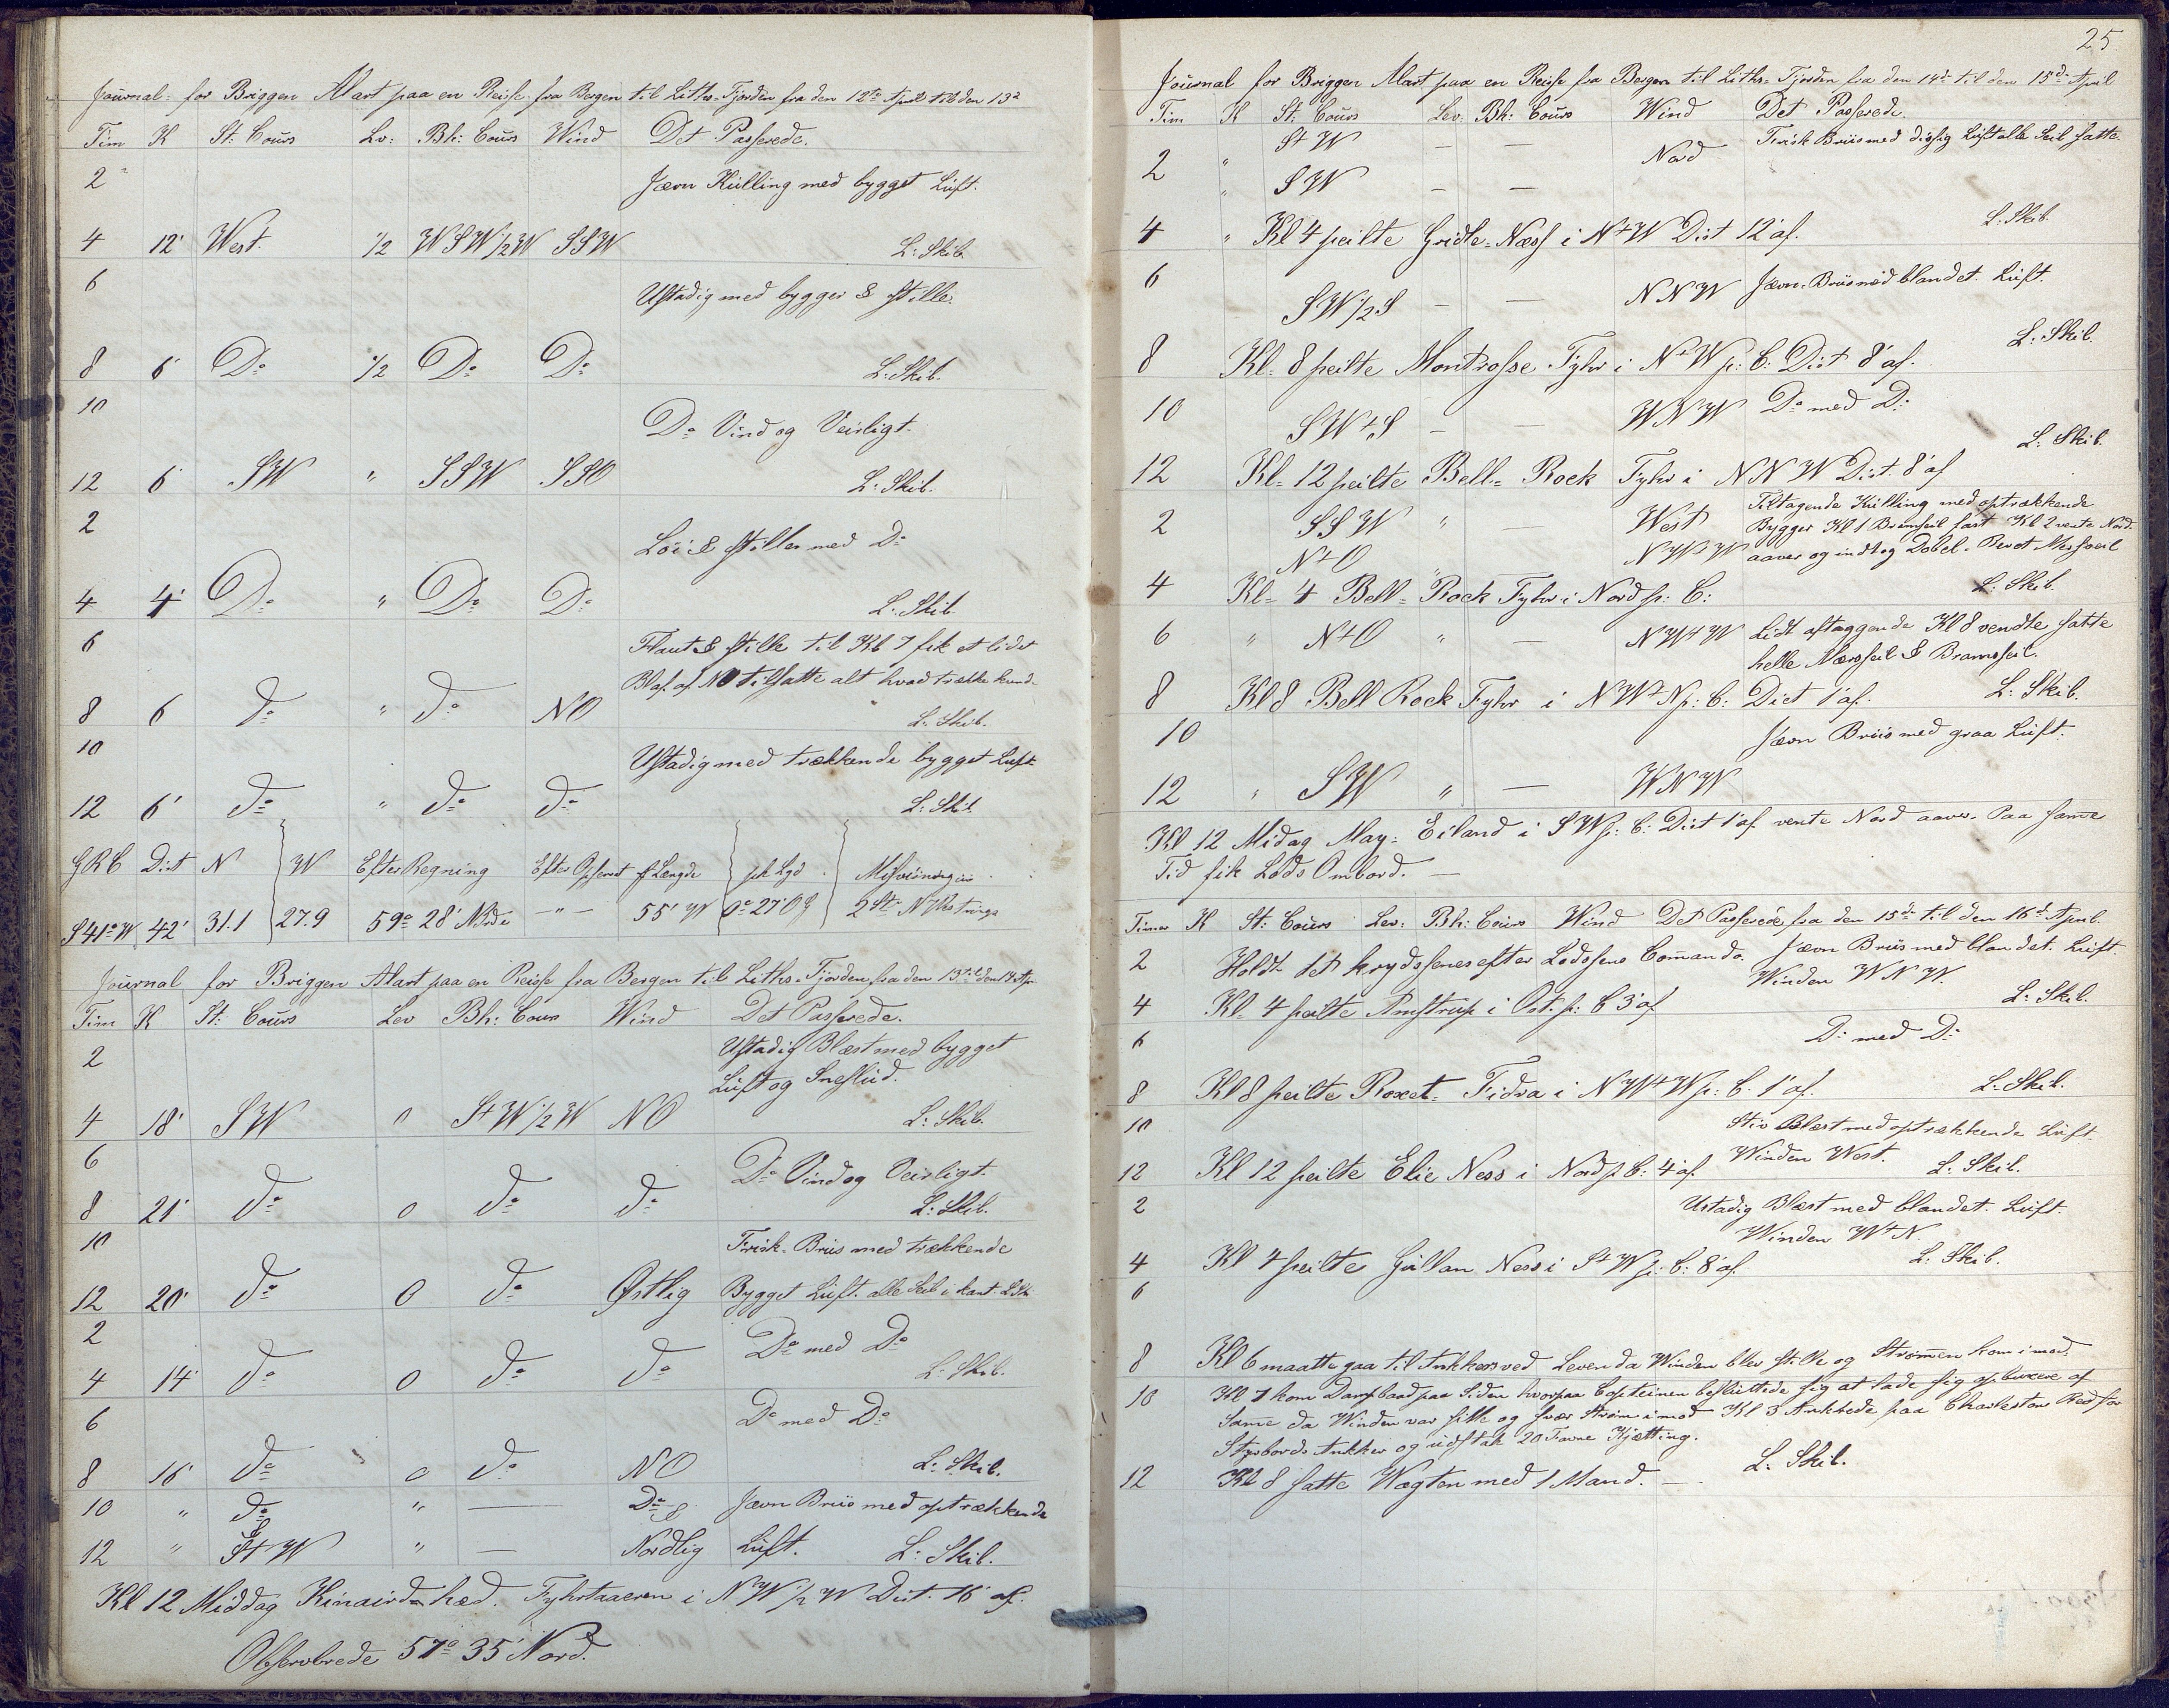 Journal for Briggen Alart paa en Reise fra Bergen til Liths-Fjorden fra den 12te April til den 13d
Tim K St: Cours Lv: Bh: Cours Wind Det Passerede.
2 Jævn Kulling med bygget Luft.
4 12' West. 1/2 WSW 1/2 W SSW L: Skib.
6 Ustadig med bygger & stille.
8 6' Do 1/2 Do Do L: Skib.
10 Do Vind og Veirligt.
12 6' SW " SSW SSO L: Skib.
2 Löi & stille med Do
4 4' Do " Do Do L. Skib
6 Flaut & stille til Kl 7 fik et lidet
Blaf af NO tilsatte alt hvad trække kund
8 6 do " do NO L. Skib.
10 Ustadig med trækkende bygget Luft
12 6' do " do do L: Skib
GRC Dist N W Efter Regning Efter Opservt f Længde pk Lgd Misvisningen
S 41° W 42' 31.1 27.9 59° 28' Nbrde - " - 55' W 0° 27' O 2 St: NVstringe
Journal for Briggen Alart paa en Reise fra Bergen til Liths-Fjorden fra den 13 til den 14 Apr
Tim K St: Cours Lev Bh: Cours Wind Det Passerede.
2 Ustadig Blæst med bygget
Luft og Sneslud.
4 18' SW 0 StW 1/2 W NO L: Skib.
6 Do Vind og Veirligt.
8 21' do 0 do do L: Skib.
10 Frisk Briis med trækkende
12 20' do 0 do Østlig Bygget Luft. alle Seil i kant L Sk
2 Do med Do
4 14' do 0 do do L: Skib.
6 Do med Do
8 16' do 0 do NO L: Skib.
10 " do " — Do & Jævn Briis med optrækkende
12 " StW " — Nordlig Luft. L: Skib.
Kl 12 Middag Kinairdhæd. Fyhrtaaeren i NW 1/2 W Dist. 16' af.
Observbrede 57° 35' Nord.
25
Journal for Briggen Alart paa en Reise fra Bergen til Liths-Fjorden fra den 14d til den 15d April
Tim K St: Cours Lev: Bh: Cours Wind Det Passerede.
StW — — Frisk Briis med diisig Luft alle Seil satte.
2 " SW — — Nord
4 " Kl 4 peilte Næss i N t W Dist 12' af. L: Skib.
6 SW 1/2 S — — NNW Jævn Briis med blandet Luft.
8 Kl 8 peilte Montrosse Fyhr i N t W p: C: Dist 8' af. L: Skib.
10 SW t S — — WNW Do med Do
12 Kl 12 peilte Bell-Rock Fyhr i NNW Dist. 8' af L: Skib.
2 SSW " — West Tiltagende Kulling med optrækkende
Bygger Kl 1 Bramseil fast Kl 2 vente Nord
N t O NW t W aaver og indtog Dobel-Revet Mersseil
4 Kl 4 Bell-Rock Fyhr i Nord p: C: L: Skib.
6 " N t O " — NW t W Lidt aftaggende Kl 8 vendte satte
helle Mersseil & Bramseil.
8 Kl 8 Bell Rock Fyhr i NW t N p: C: Dist 1' af. L: Skib.
10 Jævn Briis med graa Luft.
12 " SW " — WNW
Kl 12 Midag May-Eiland i SW p: C: Dist 1' af. vente Nord aaver. Paa same
Tid fik Lods Ombord. —
Timer K St: Cours Lev: Bh: Cours Wind Det Passerede fra den 15d til den 16d April.
2 Holdt det krydssenes efter Lodsens Comando. Jævn Briis med blandet Luft.
Winden WNW.
4 Kl 4 peilte Anstrup i Ost. p: C 3' af L: Skib.
6 Do med Do
8 Kl 8 peilte Fidra i NW t W p: C. 1' af. L: Skib.
10 Stiv Blæst med optrækkende Luft.
12 Kl 12 peilte Elie Ness i Nord p C: 4' af Winden West. L: Skib.
2 Ustadig Blæst med blandet Luft.
Winden W t N.
4 Kl 4 peilte Gullan Ness i StW p: C: 8' af. L: Skib.
6
8 Kl 6 maatte gaa til Ankkers ved Leven da Winden blev stille og Strømen kom imod.
10 Kl 7 kom Dampbaad paa Siden hvorpaa Capteinen besluttede sig at lade sig opbuxere af
Same da Winden var stille og svær Strøm imod Kl 8 Ankrede paa Charleston Red for
Styrbords Ankker og udstak 20 Favne Kjætting.
12 Kl 8 satte Wagten med 1 Mand. — L: Skib.